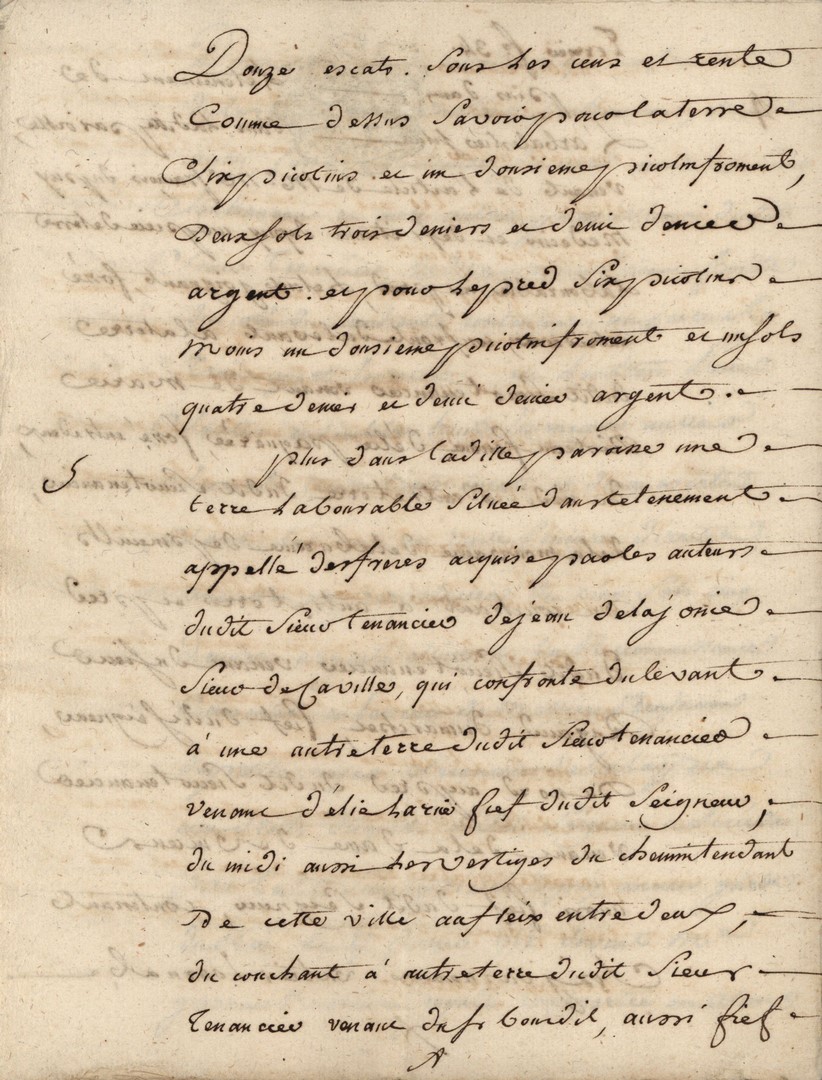 Douze escats. Sous les cens et rente
Comme dessus Savoir pour la terre
Six picotins et un donsieme picotin froment,
Deux sols trois deniers et demi denier
argent. et pour le pred Six picotins
moins un donsieme picotin froment et un sols
quatre denier et demi denier argent.
plus dans ladille paroisse une
5
terre labourable Située dans le tenement
appellé des freres acquise par les auteurs
dudit Sieur tenancier de jean delajonie
Sieur de Caville, qui confronte du levant
à une autre terre dudit Sieur tenancier
venant d'élie fief dudit Seigneur,
du midi aussi les vertiges du chemin tendant
De cette ville au fleix entre deux,
du couchant à autre terre dudit Sieur
Tenancier venant du sr bourdil, aussi fief